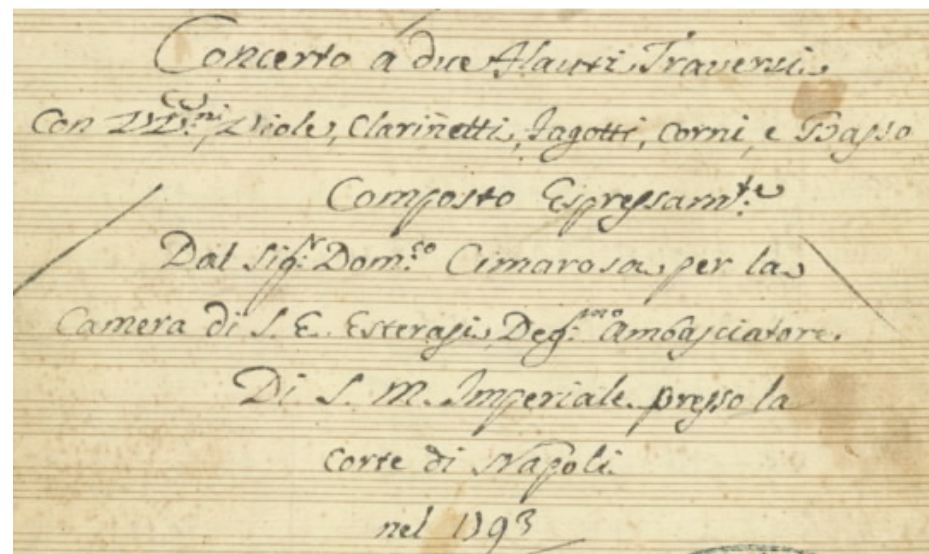 Concerto a due Flauti Traversi
Con VV:ni, Viole, Clarinetti, Fagotti, Corni, e Basso
Composto Espressam:te
Dal Sig:r Dom:co Cimarosa per la
Camera di S. E. Esterasi, Deg:mo Ambasciatore
Di S. M. Imperiale presso la
Corte di Napoli
nel 1793